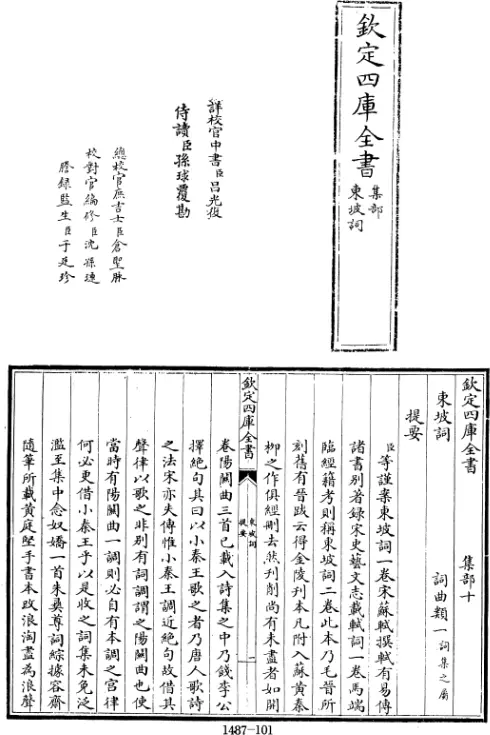 欽定四庫全書
集部
東坡詞
詳校官中書臣呂光復
侍讀臣孫球覆勘
總校官庶吉士臣倉聖脉
校對官編修臣沈孫璉
謄録監生臣于是珍
欽定四庫全書
集部十
東坡詞
詞曲類一詞集之屬
提要
臣等謹案東坡詞一卷宋蘇軾撰軾有易傳
諸書别著録宋史藝文志載軾詞一卷馬端
臨經籍考則稱東坡詞二卷此本乃毛晉所
刻舊有晉跋云得金陵刊本凡附入蘇黄秦
柳之作俱經刪去然刋削尚有未盡者如開
欽定四庫全書
東坡詞
提要
一
卷陽關曲三首已載入詩集之中乃餞李公
擇絶句其曰以小秦王歌之者乃唐人歌詩
之法宋亦失傳惟小秦王調近絶句故借其
聲律以歌之非别有詞調謂之陽關曲也使
當時有陽關曲一調則必自有本調之宫律
何必更借小秦王乎以是收之詞集未免泛
濫至集中念奴嬌一首朱彞尊詞綜據容齋
隨筆所載黄庭堅手書本改浪淘盡為浪聲
1487-101